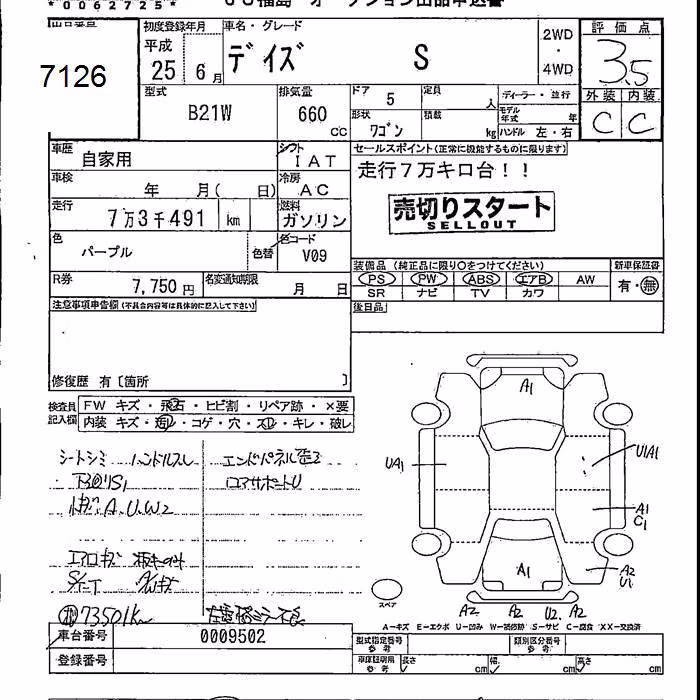 *0062725*
7126
初度登録年月
車名・グレード
平成
25 6月
デイズ S
2WD
・
4WD
評価点
3.5
外装 内装
C C
型式
B21W
排気量
660
CC
ドア 5
定員 人
ディーラー・並行
形状 ワゴン
積載 kg
モデル年式 年
ハンドル 左・右
車歴
自家用
シフト
IAT
セールスポイント(正常に機能するものに限ります)
走行7万キロ台！！
売切りスタート
SELLOUT
車検
年 月( 日)
冷房
AC
走行
7万3千491 km
燃料
ガソリン
色
パープル
色替
色コード
V09
R券
7,750円
名変通知期限
月 日
装備品 (純正品に限り○をつけてください)
新車保証書
PS PW ABS エアB AW
有・無
SR ナビ TV カワ
後日品
注意事項申告欄(不具合内容等は具体的に記入して下さい)
修復歴 有〔箇所 〕
検査員
記入欄
FW キズ・飛石・ヒビ割・リペア跡・×要
内装 キズ・汚レ・コゲ・穴・スレ・キレ・破レ
シートシミ ハンドルスレ
エンドパネル歪ミ
コアサポートU
A.U.W2
エアロキズ
73501km
A1
UA1
U1A1
A1
C1
A2
U1
A1
スペア
A2 A2 U2 A2
A-キズ E-エクボ U-凹み W-補修跡 S-サビ C-腐食 XX-交換済
車台番号
0009502
登録番号
型式指定番号
参考
類別区分番号
参考
車庫証明用
参考
長さ cm 幅 cm 高さ cm